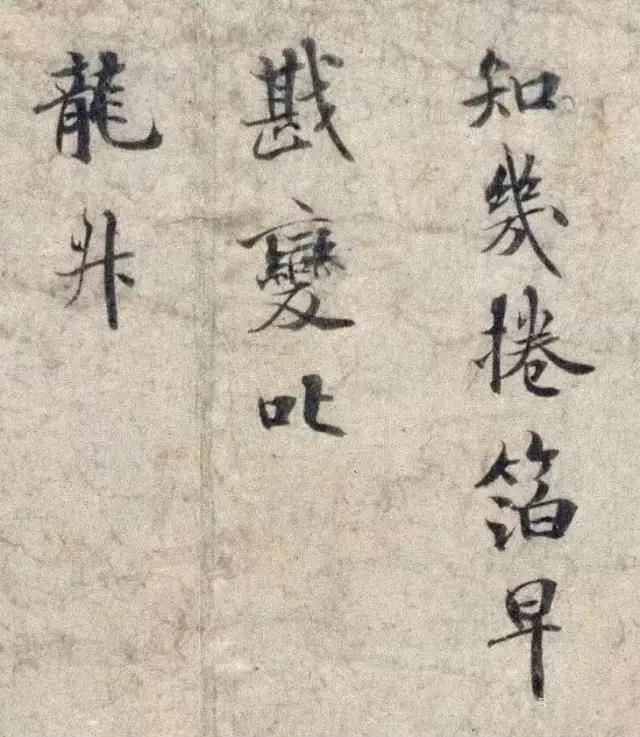 知幾捲箔早
戡變叱
龍升